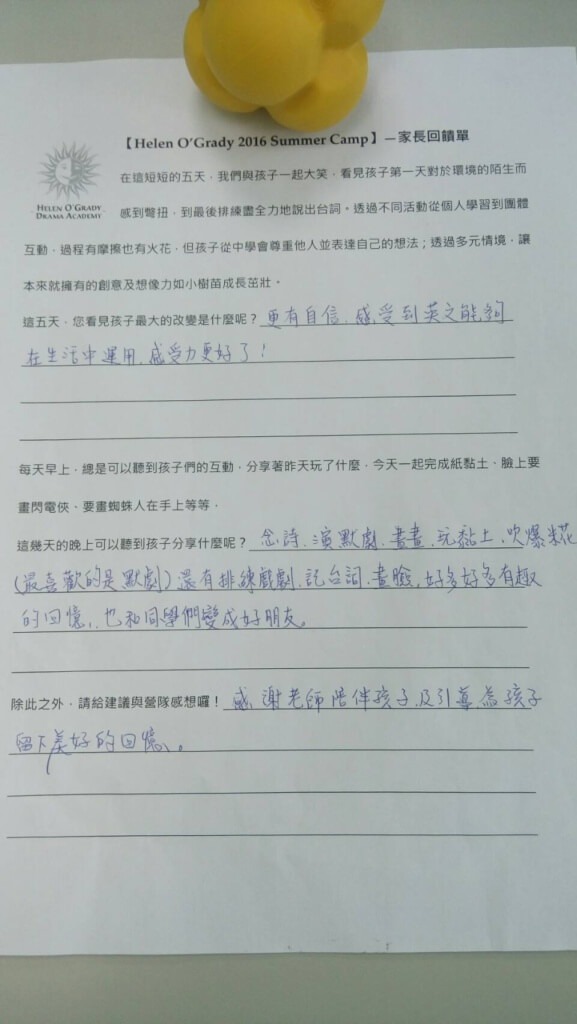 【Helen O'Grady 2016 Summer Camp】—家長回饋單
HELEN O'GRADY
DRAMA ACADEMY
在這短短的五天，我們與孩子一起大笑，看見孩子第一天對於環境的陌生而
感到彆扭，到最後排練盡全力地說出台詞。透過不同活動從個人學習到團體
互動，過程有摩擦也有火花，但孩子從中學會尊重他人並表達自己的想法；透過多元情境，讓
本來就擁有的創意及想像力如小樹苗成長茁壯。
這五天，您看見孩子最大的改變是什麼呢？更有自信、感受到英文能夠
在生活中運用、感受力更好了！
每天早上，總是可以聽到孩子們的互動，分享著昨天玩了什麼，今天一起完成紙黏土、臉上要
畫閃電俠、要畫蜘蛛人在手上等等，
這幾天的晚上可以聽到孩子分享什麼呢？念詩、演默劇、畫畫、玩黏土、吹爆米花
(最喜歡的是默劇) 還有排練戲劇、記台詞、畫臉，好多好多有趣
的回憶，也和同學們變成好朋友。
除此之外，請給建議與營隊感想囉！感謝老師陪伴孩子及引導，為孩子
留下美好的回憶。